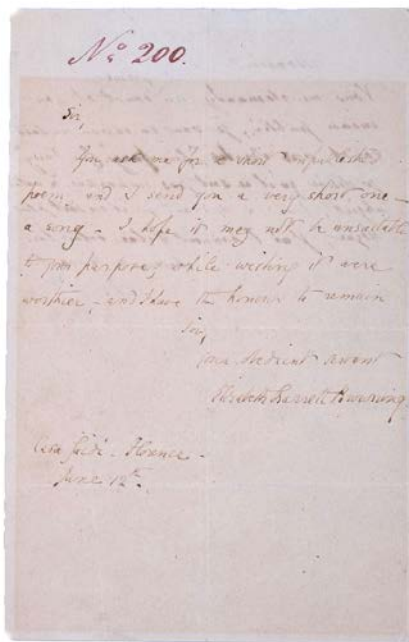 No 200.
Sir,
You ask me for a short unpublished
poem, and I send you a very short one -
a song - I hope it may not be unsuitable
to your purposes while wishing it were
worthier, - and I have the honour to remain
Sir,
Your obedient servant
Elizabeth Barrett Browning
Casa Guidi - Florence -
June 12th.